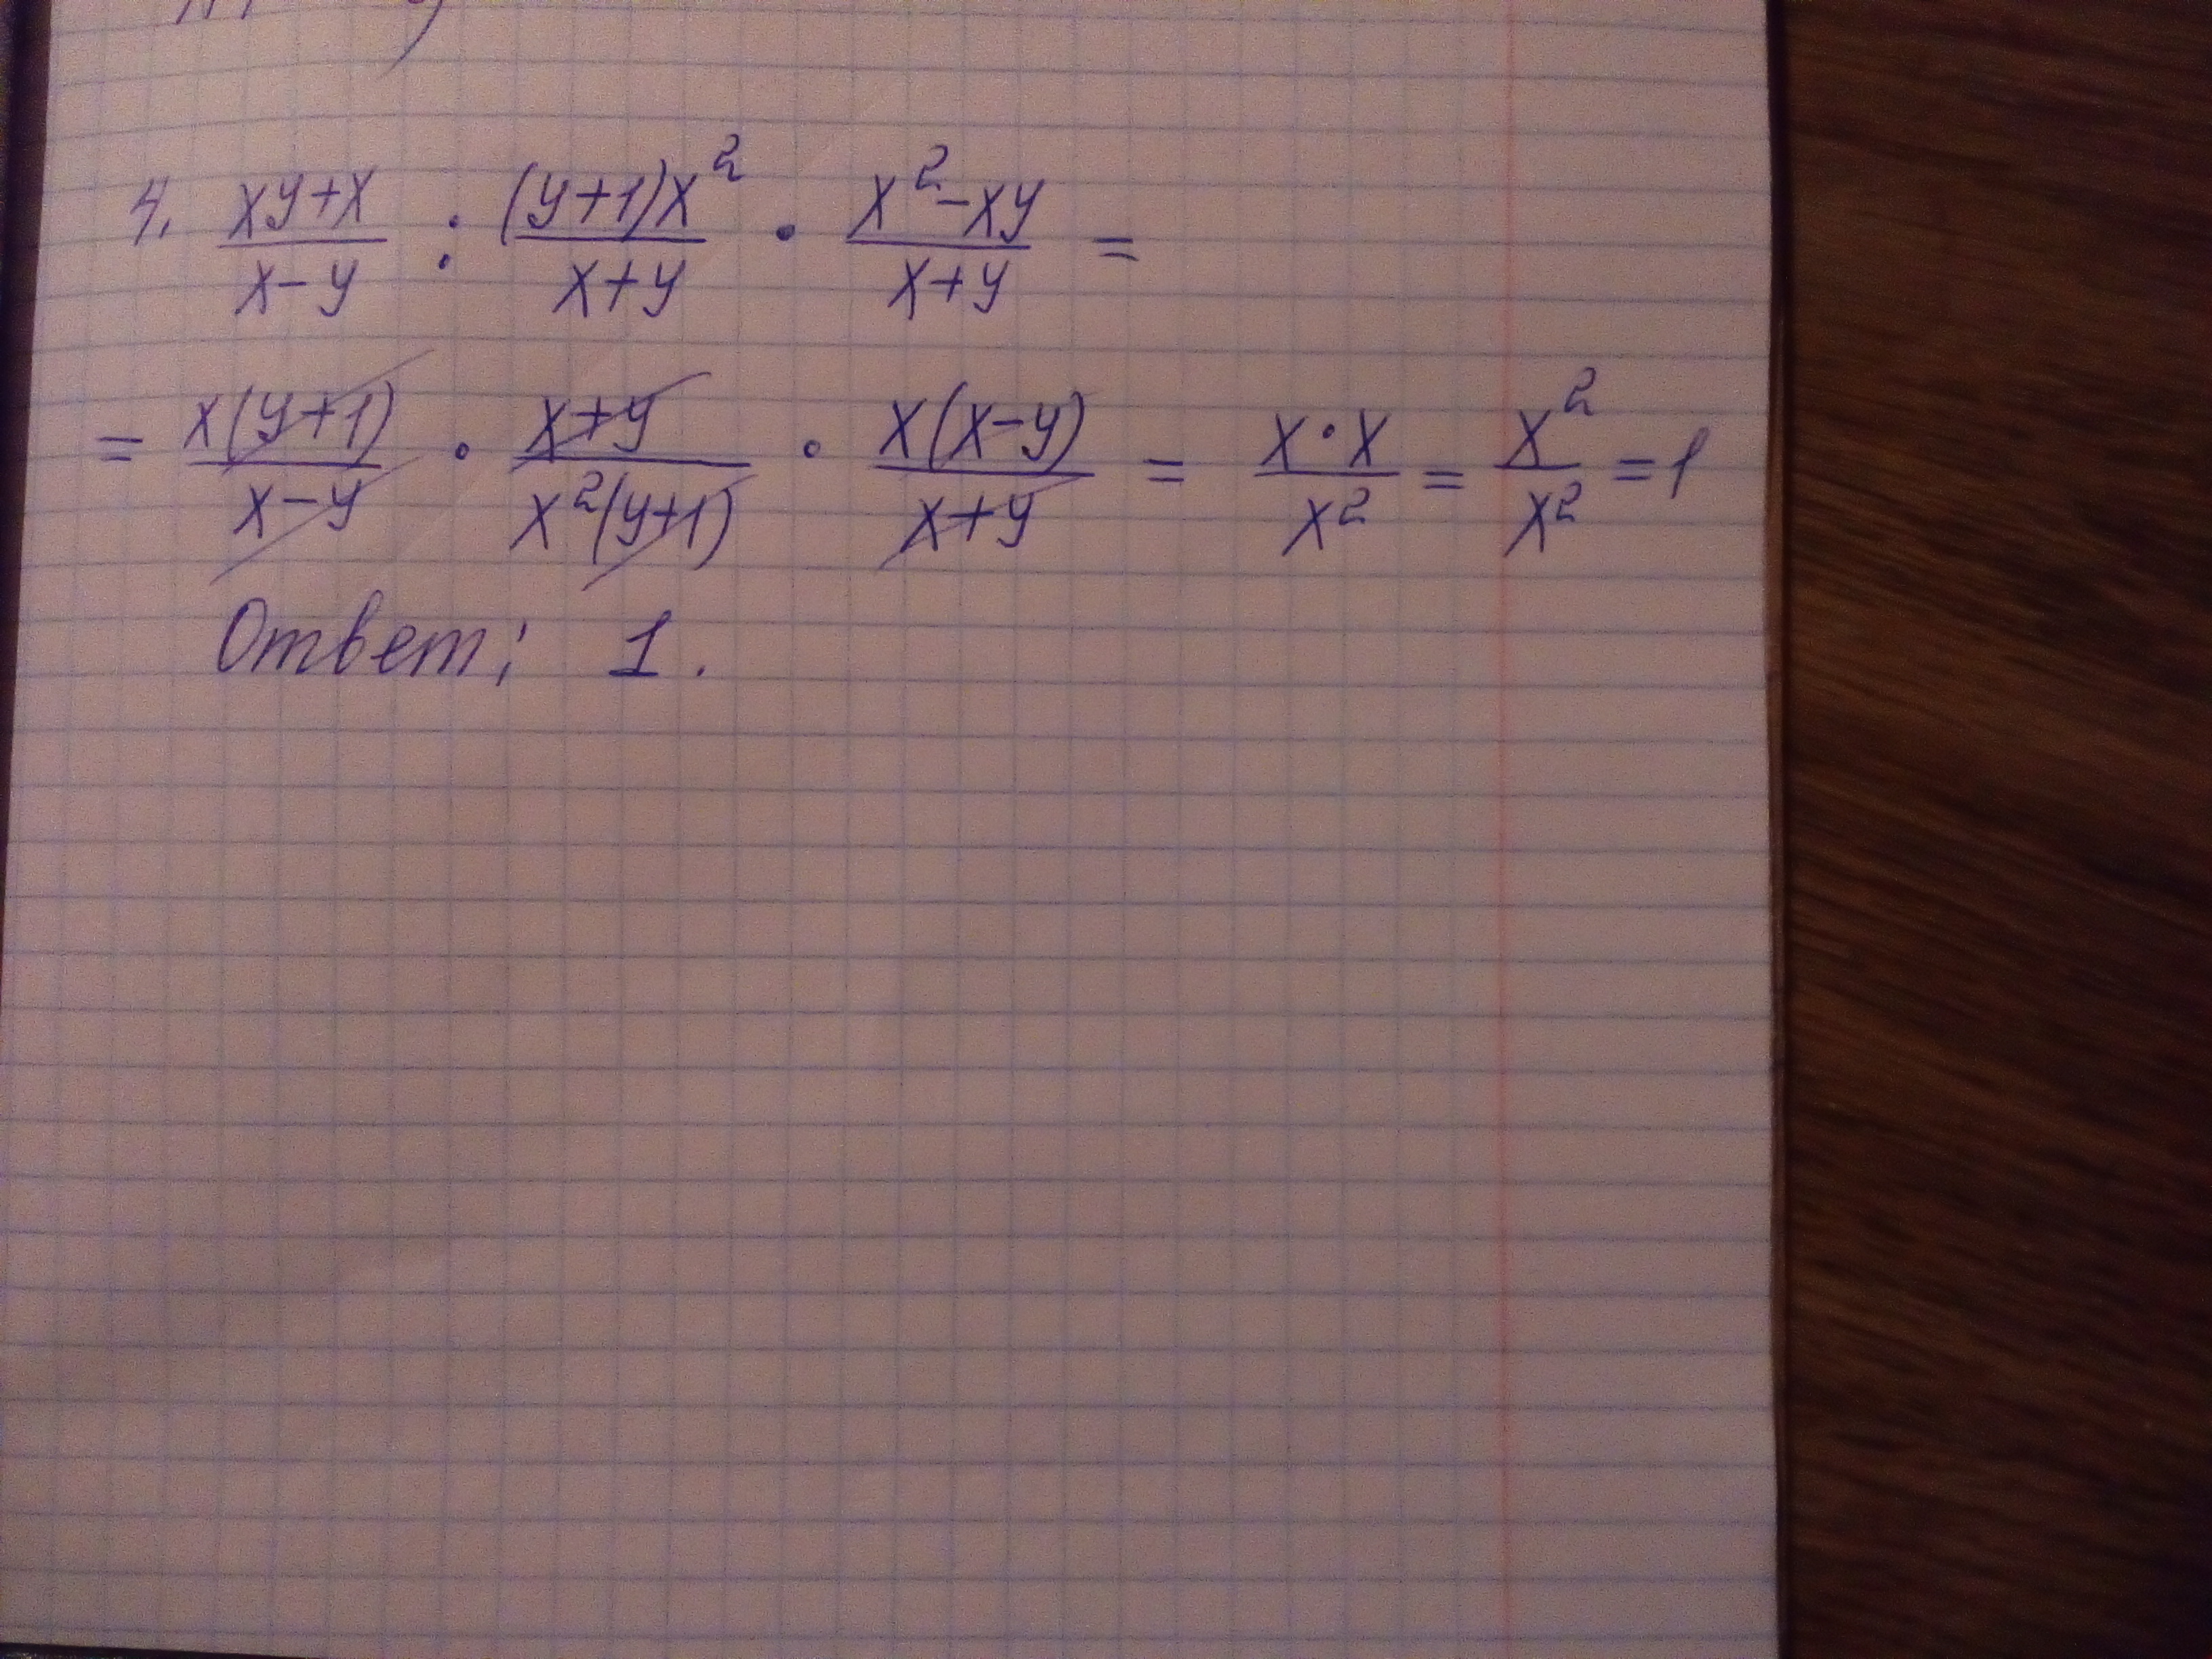 4. (xy+x)/(x-y) : ((y+1)x²)/(x+y) · (x²-xy)/(x+y) =
= (x(y+1))/(x-y) · (x+y)/(x²(y+1)) · (x(x-y))/(x+y) = (x·x)/x² = x²/x² = 1
Ответ: 1.